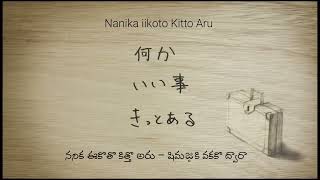 Nanika iikoto Kitto Aru
何か
いい事
きっとある
ననిక ఈకొతొ కిత్తొ అరు – షిమఙుకి వకకొ ద్వారా